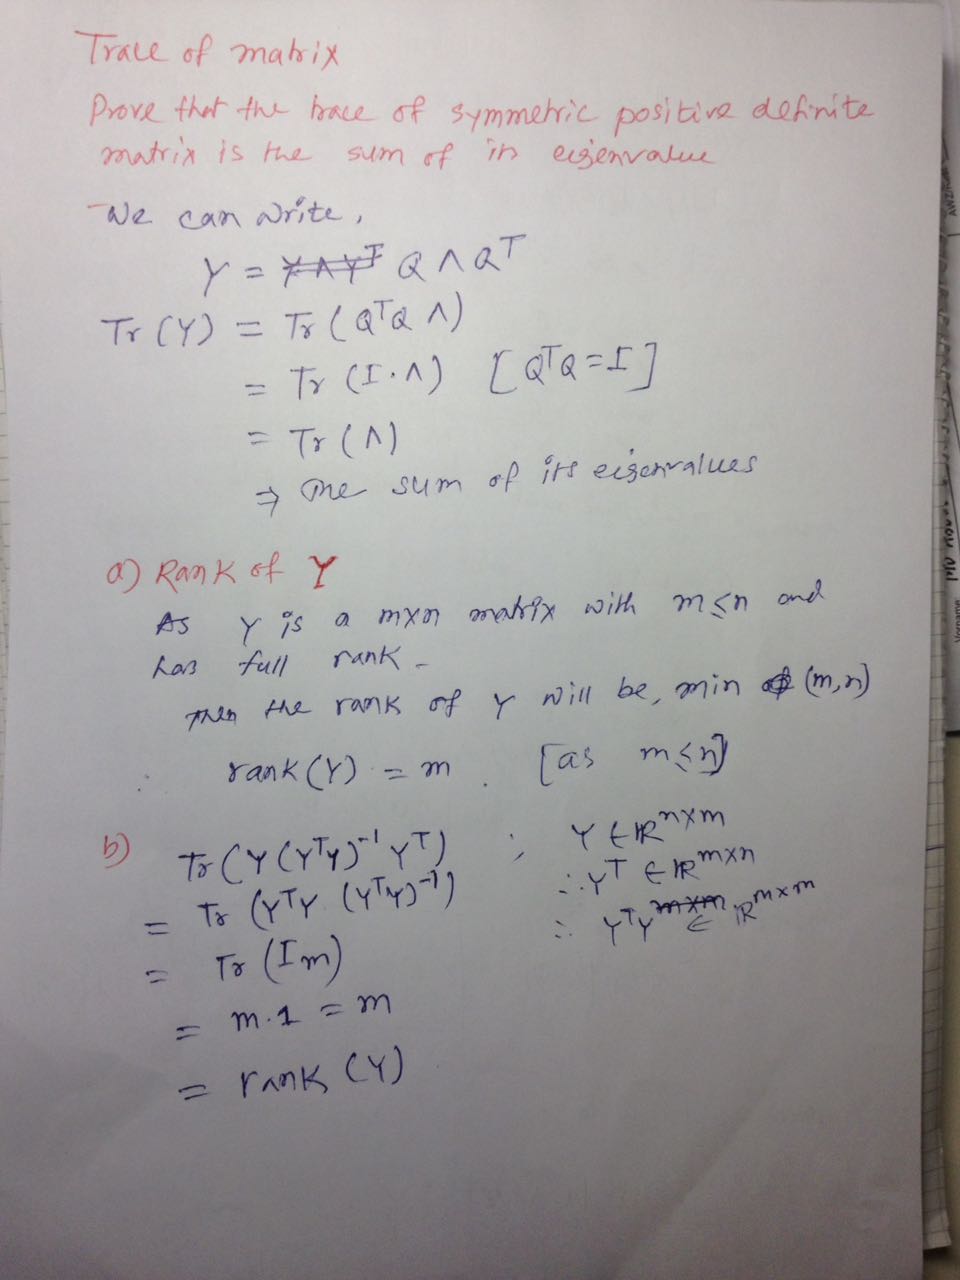 Trace of matrix
Prove that the trace of symmetric positive definite
matrix is the sum of its eigenvalue
We can write,
Y = Q Λ Qᵀ
Tr (Y) = Tr (QᵀQ Λ)
= Tr (I·Λ) [QᵀQ = I]
= Tr (Λ)
⇒ The sum of its eigenvalues
a) Rank of Y
As Y is a m×n matrix with m≤n and
has full rank.
Then the rank of Y will be, min (m,n)
∴ rank (Y) = m . [as m≤n]
b) Tr (Y (YᵀY)⁻¹ Yᵀ) ; Y ∈ ℝⁿˣᵐ
= Tr (YᵀY (YᵀY)⁻¹) ∴ Yᵀ ∈ ℝᵐˣⁿ
= Tr (Im) ∴ YᵀY ∈ ℝᵐˣᵐ
= m·1 = m
= rank (Y)